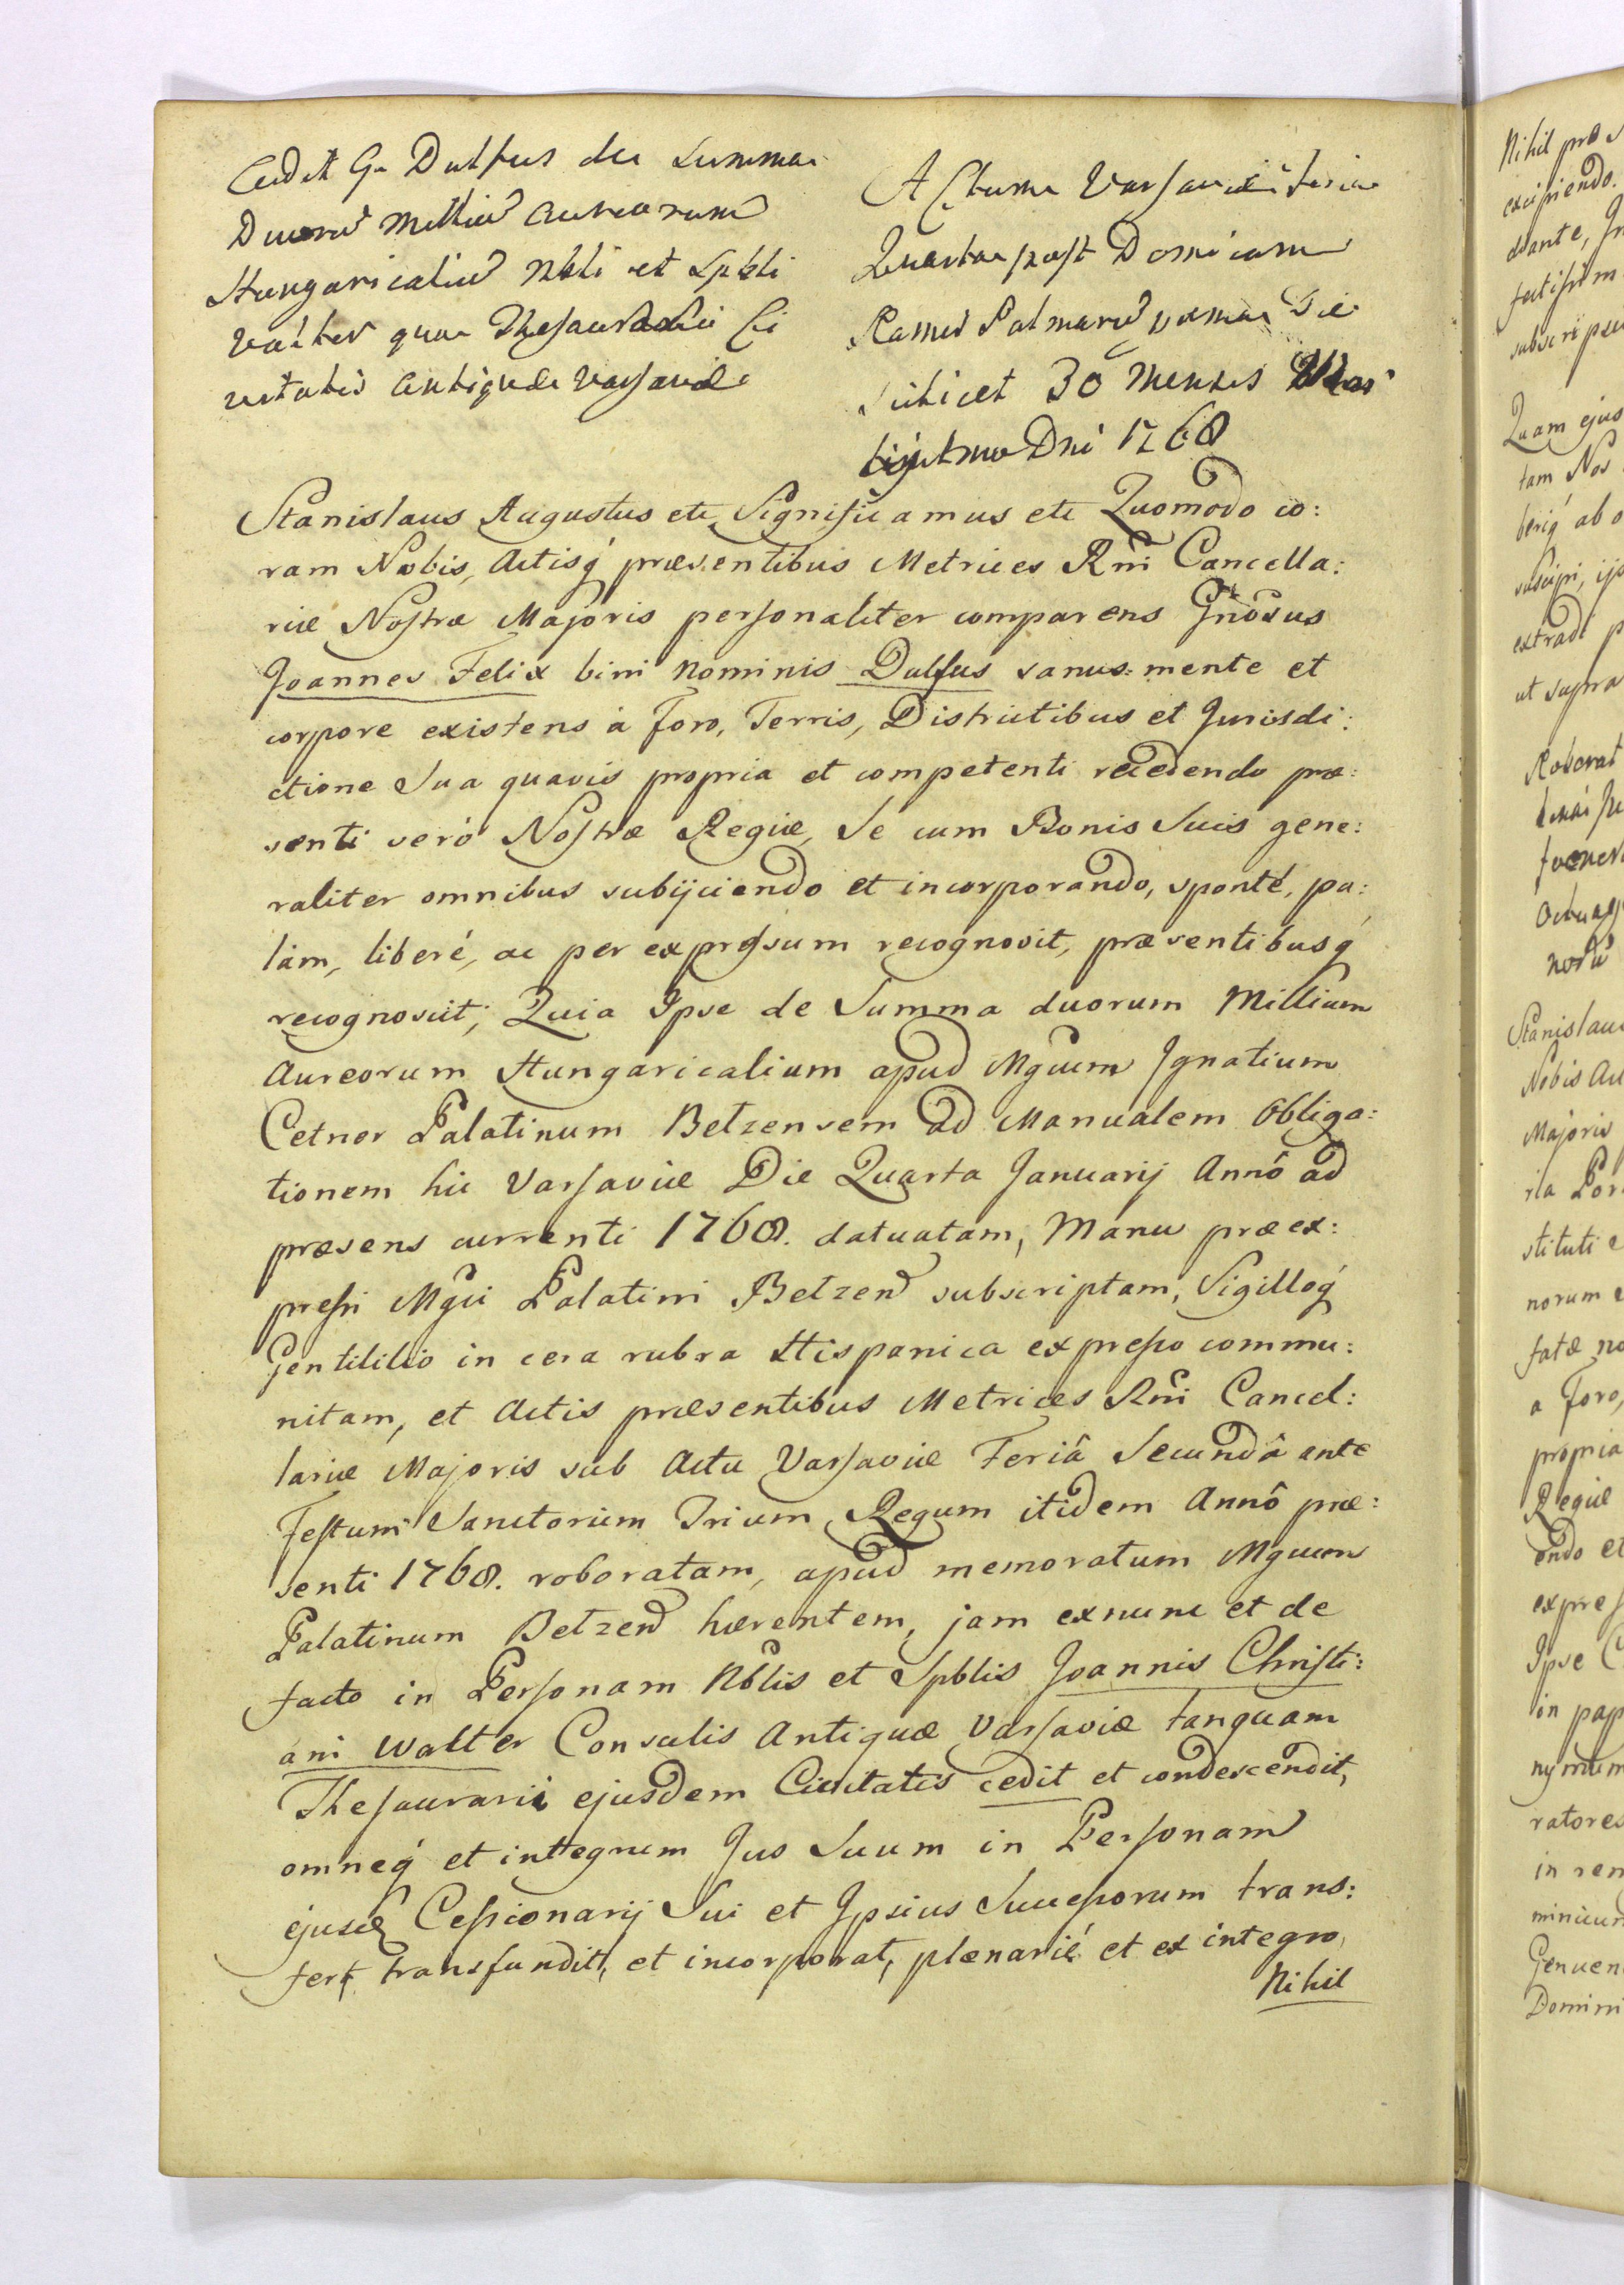 Cedit G. Dulfus de Summa
Duorũ Milliũ Aureorum
Hungaricaliũ Nbli et Spbli
Valter qua Thesaurario Ci
vitatis Antiquæ Varsaviæ
Actum Varsaviæ feria
Quarta post Domicam
Ramis Palmarũ proxima Die
scilicet 30 Mensis Mar
tij Anno Dni 1768
Stanislaus Augustus etc Significamus etc Quomodo co:
ram Nobis, Actisq́ præsentibus Metrices Rni Cancella:
riæ Nostræ Majoris personaliter comparens Gnosus
Joannes Felix bini nominis Dulfus sanus mente et
corpore existens à foro, Terris, Districtibus et Jurisdi:
ctione Sua quavis propria et competenti recedendo præ:
senti verò Nostræ Regiæ, Se cum Bonis Suis gene:
raliter omnibus subijciendo et incorporando, sponté, pa:
làm, liberé, ac per expressum recognovit, præsentibusq́
recognoscit; Quia Ipse de Summa duorum Millium
Aureorum Hungaricalium apud Mgcum Ignatium
Cetner Palatinum Betzensem ad Manualem Obliga:
tionem hic Varsaviæ Die Quarta Januarij Annô ad
præsens currenti 1768. datuatam, Manu præex:
pressi Mgci Palatini Betzen subscriptam, Sigilloq́
Gentilitio in cera rubra Hispanica expresso commu:
nitam, et Actis præsentibus Metrices Rni Cancel:
lariæ Majoris sub Actu Varsaviæ Feriâ Secundâ ante
Festum Sanctorum Trium Regum itidem Annô præ:
senti 1768. roboratam, apud memoratum Mgcum
Palatinum Betzen hærentem, jam exnunc et de
facto in Personam Nblis et Spblis Joannis Christi:
ani Walter Consulis Antiquæ Varsaviæ tanquam
Thesaurarii ejusdem Civitatis cedit et condescendit,
omneq́ et integrum Jus Suum in Personam
ejusd Cessionarij Sui et Ipsius Successorum trans:
fert transfundit, et incorporat, plenarié et ex integro,
Nihil
Nihil
excipiendo.
subscripsi
Quam ejus
tam Nos
ab o
suscipi,
extradi p
ut supra
Roborat
Stanislaus
Nobis Ac
Majoris
ria
stituti
norum
fatæ no
a Foro,
propria
Regiæ
endo et
expres
Ipse C
in pap
ratores
in rem
Genuen
Domini